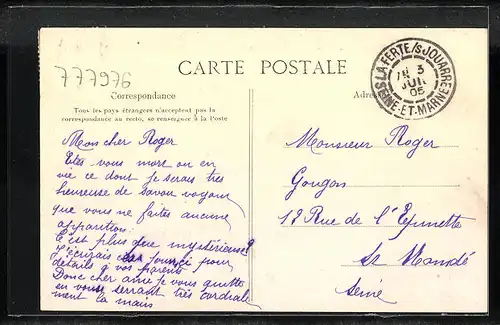 777976
CARTE POSTALE
LA FERTE/S JOUARRE
3
JUIN
05
SEINE-ET-MARNE
Correspondance
Tous les pays étrangers n'acceptent pas la
correspondance au recto, se renseigner à la Poste
Mon cher Roger
Etes vous mort ou en
vie ce dont je serais très
heureuse de savoir voyant
que vous ne faites aucune
apparition.
C'est plus que mystérieuse?
J'écrirais ces pour
details à vos parents
Donc cher ami je vous quitte
en vous serrant très cordiale
ment la main
Adre
Monsieur Roger
Gougon
12 Rue de l'Epinette
St Mandé
Seine